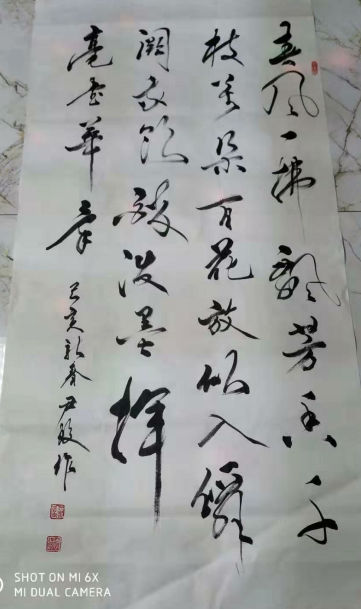 春风一拂飘芳香千
枝万朵百花放似入僊
阙我泼墨挥
毫书华章
己亥新春尹作
SHOT ON MI 6X
MI DUAL CAMERA